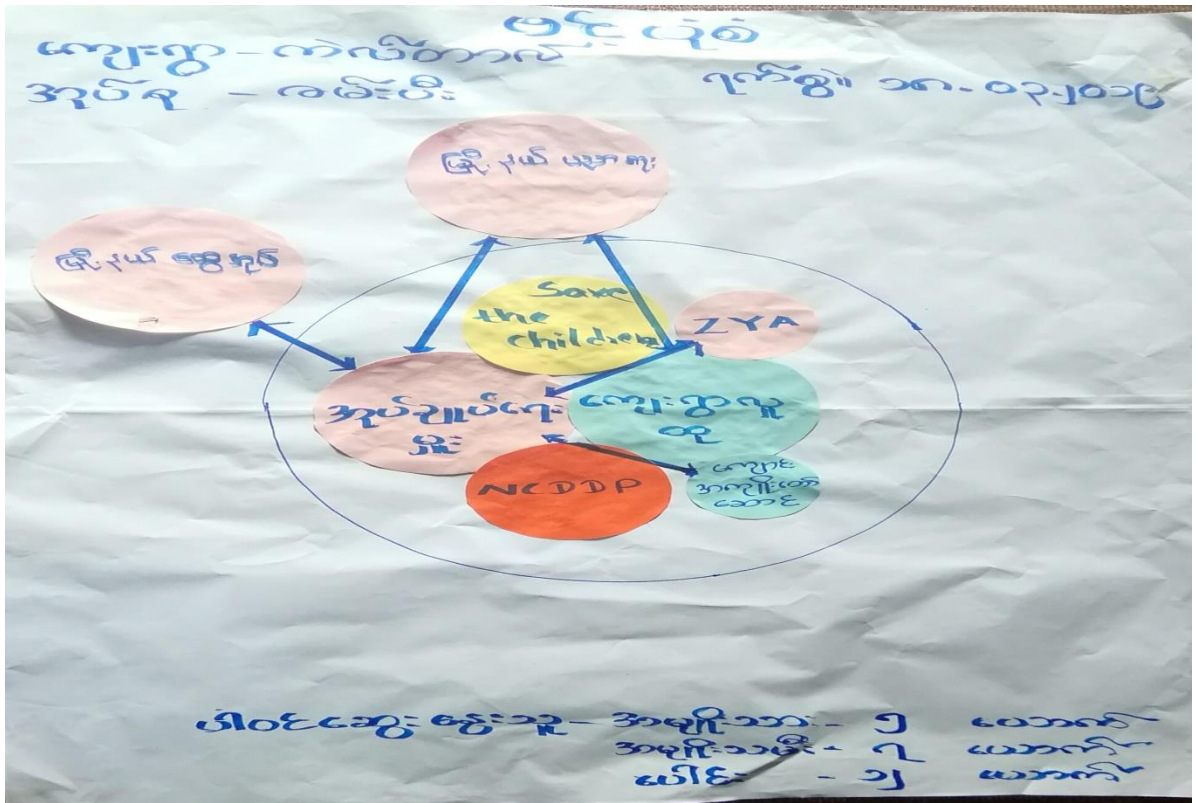 ဗင်းပုံစံ
ကျေးရွာ - ကဲလ်တာလ်
အုပ်စု - လမ်းပီး
ရက်စွဲ။ ၁၈.၀၃.၂၀၁၉
မြို့နယ် ပညာရေး
မြို့နယ် ထွေအုပ်
Save
the
children
ZYA
အုပ်ချုပ်ရေး
မှူး
ကျေးရွာလူ
ထု
NCDDP
ကျောင်း
အကျိုးတော်
ဆောင်
ပါဝင်ဆွေးနွေးသူ - အမျိုးသား - ၅ ယောက်
အမျိုးသမီး - ၇ ယောက်
ပေါင်း - ၁၂ ယောက်